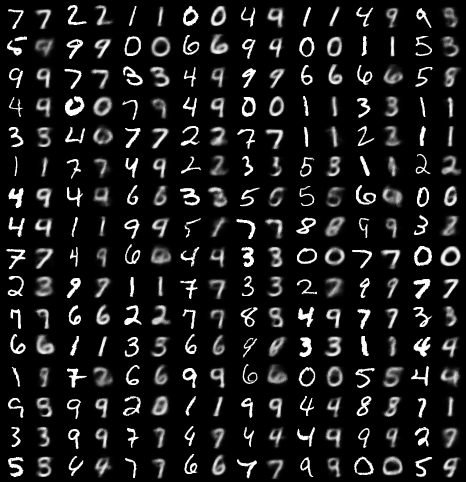 7 7 2 2 1 1 0 0 4 9 1 1 4 9 9 8
5 9 9 9 0 0 6 6 9 9 0 0 1 1 5 3
9 9 7 7 3 3 4 9 9 9 6 6 6 6 5 8
4 9 0 0 7 9 4 9 0 0 1 1 3 3 1 1
3 3 4 0 7 7 2 2 7 7 1 1 2 2 1 1
1 1 7 7 4 9 2 2 3 3 5 3 1 1 2 2
4 9 4 4 6 6 3 3 5 6 5 5 6 0 0
4 9 1 1 9 9 5 1 7 7 8 8 9 9 3 8
7 7 4 9 6 6 4 4 3 3 0 0 7 7 0 0
2 3 9 9 1 1 7 7 3 3 2 7 9 9 7 7
7 7 6 6 2 2 7 7 8 8 4 9 7 7 3 3
6 6 1 1 3 3 6 6 9 8 3 3 1 1 4 4
1 9 7 2 6 6 9 9 6 6 0 0 5 5 4 4
9 9 9 9 2 0 1 1 9 9 4 4 8 8 7 1
3 3 9 9 7 7 4 9 4 4 4 9 9 9 2 9
5 5 4 4 7 7 6 6 7 7 9 9 0 0 5 9